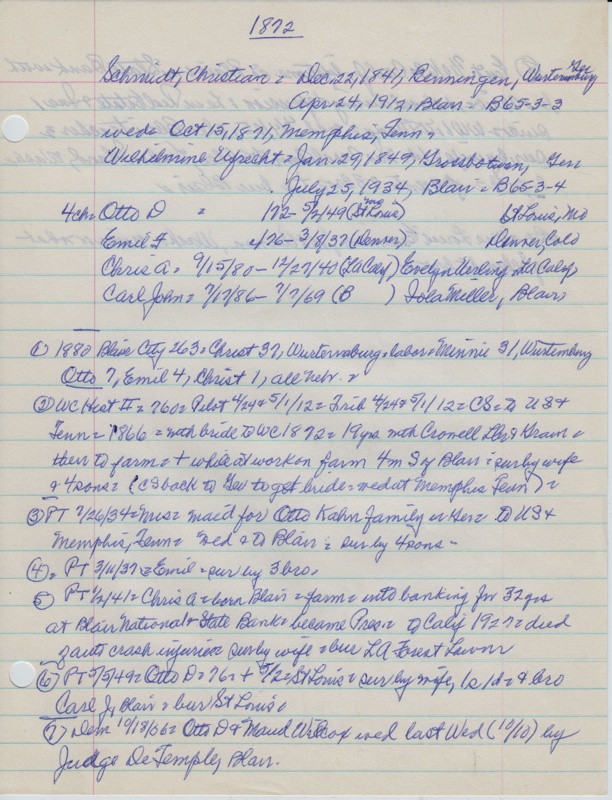 1872
Schmidt, Christian = Dec 22, 1841, Renningen, Wurtemburg Ger
Apr 24, 1912, Blair = B65-3-3
weds Oct 15, 1871, Memphis, Tenn =
Wilhelmine Ufrecht = Jan 29, 1849, Grossbotwen, Ger
July 25, 1934, Blair = B65-3-4
4ch = Otto D = /72 - 5/2/49 (St Louis) St Louis, Mo
Emil F 4/76 - 3/8/37 (Denver) Denver, Colo
Chris A = 9/15/80 - 12/27/40 (LA Calif) Evelyn LA Calif
Carl John = 7/17/86 - 7/7/69 (B ) Iola Miller, Blair
① 1880 Blair City 263 = Christ 37, Wurtemburg = labor = Minnie 31, Wurtemburg
Otto 7, Emil 4, Christ 1, all Nebr. =
② WC Hist II = 760 = Pilot 4/24 & 5/1/12 = Trib 4/24 & 5/1/12 = CS = to US &
Tenn = 1866 = with bride to WC 1872 = 19 yrs with Crowell Lbr & Grain =
then to farm = + while at work on farm 4 m S of Blair = sur by wife
& 4 sons = (CS back to Ger to get bride = wed at Memphis Tenn) =
③ PT 7/26/34 = Mrs = maid for Otto Kahn family in Ger = to US &
Memphis, Tenn = wed & to Blair = sur by 4 sons =
④ = PT 3/11/37 = Emil = sur by 3 bro.
5 PT 1/2/41 = Chris A = born Blair = farm = into banking for 32 yrs
at Blair National & State Bank = became Pres = to Calif 1927 = died
of auto crash injuries = sur by wife = bur LA Forest Lawn
⑥ PT 5/5/49 = Otto D = 76 = + 5/2 = St Louis = sur by wife, 1s 1d = & bro
Carl J, Blair = bur St Louis =
⑦ Dem 10/18/06 = Otto D & Maud Wilcox wed last Wed (10/10) by
Judge De Temple, Blair.